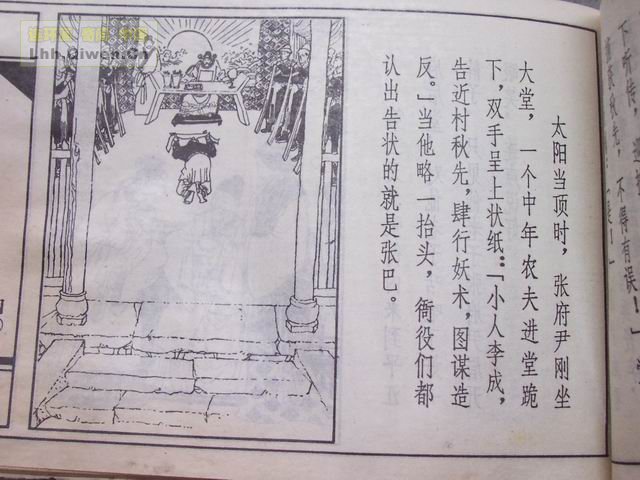 下听传，
秋先，
不得有误！
太阳当顶时，张府尹刚坐
大堂，一个中年农夫进堂跪
下，双手呈上状纸：「小人李成，
告近村秋先，肆行妖术，图谋造
反。」当他略一抬头，衙役们都
认出告状的就是张巴。
Lhh.Qiwen.Cn